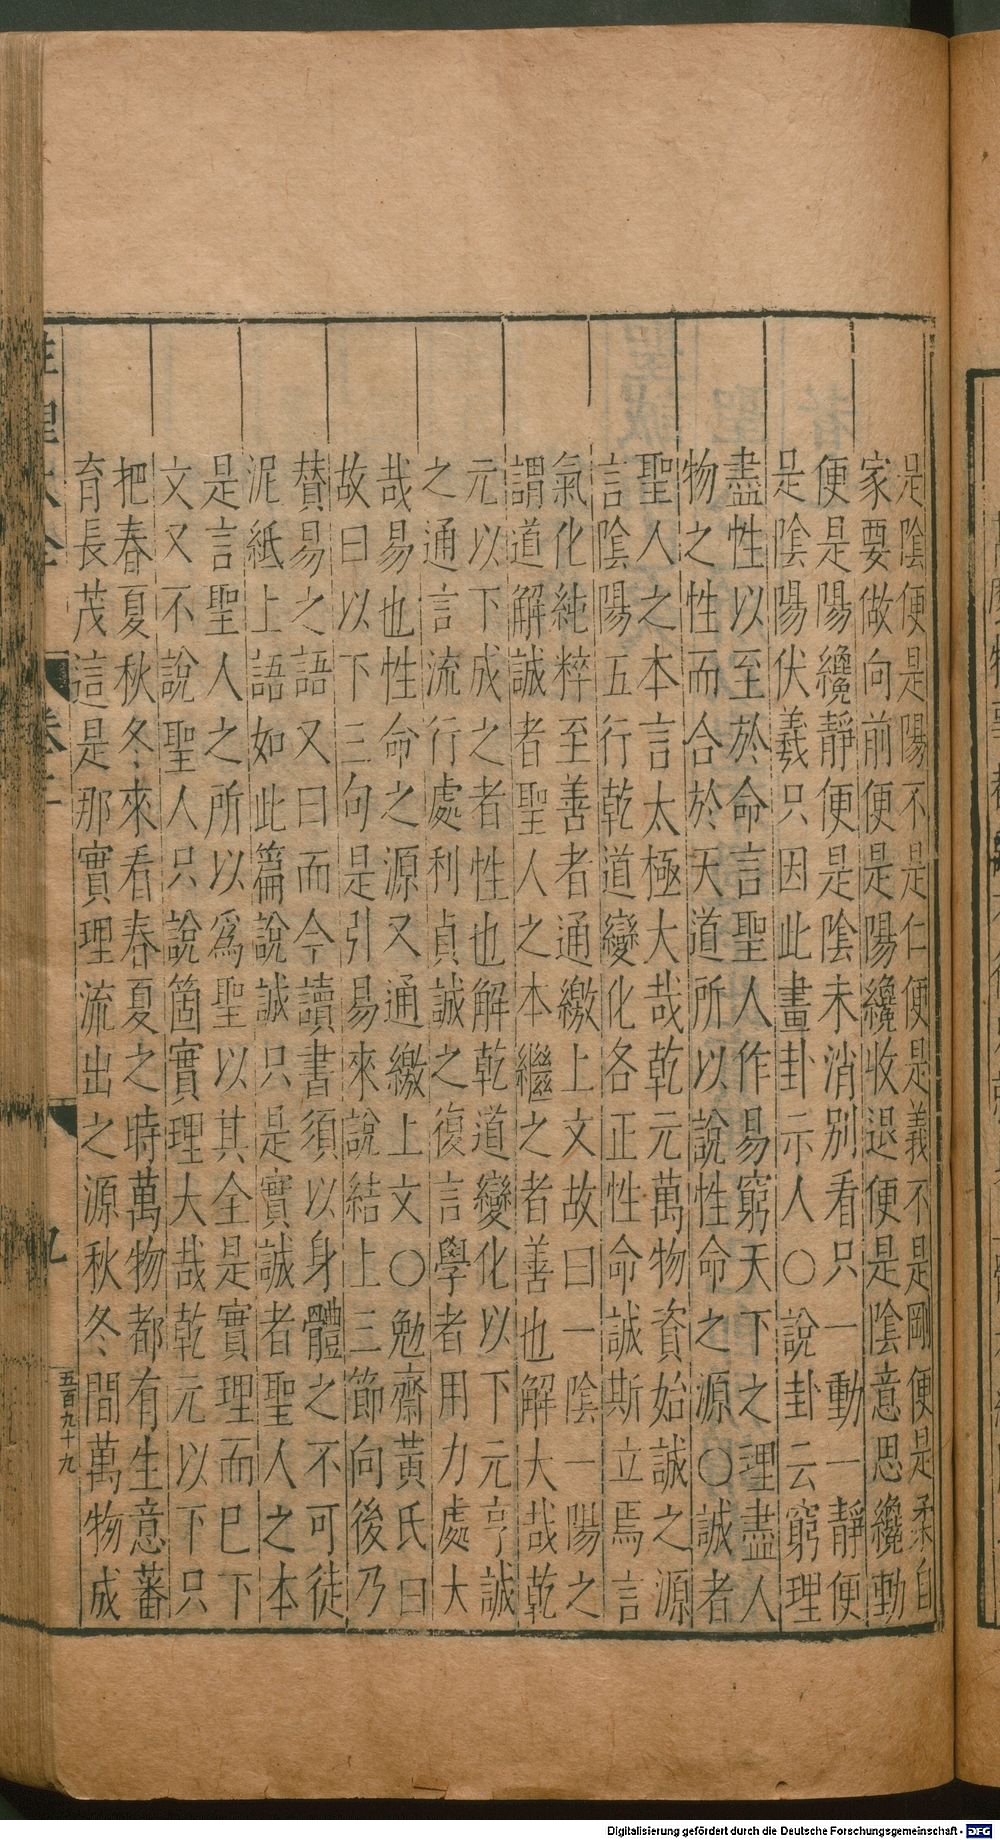 是陰便是陽不是仁便是義不是剛便是柔自
家要做向前便是陽纔收退便是陰意思纔動
便是陽纔靜便是陰未消別看只一動一靜便
是陰陽伏羲只因此畫卦示人○說卦云窮理
盡性以至於命言聖人作易窮天下之理盡人
物之性而合於天道所以說性命之源○誠者
聖人之本言太極大哉乾元萬物資始誠之源
言陰陽五行乾道變化各正性命誠斯立焉言
氣化純粹至善者通繳上文故曰一陰一陽之
謂道解誠者聖人之本繼之者善也解大哉乾
元以下成之者性也解乾道變化以下元亨誠
之通言流行處利貞誠之復言學者用力處大
哉易也性命之源又通繳上文○勉齋黃氏曰
故曰以下三句是引易來說結上三節向後乃
賛易之語又曰而今讀書須以身體之不可徒
泥紙上語如此篇說誠只是實誠者聖人之本
是言聖人之所以爲聖以其全是實理而已下
文又不說聖人只說箇實理大哉乾元以下只
把春夏秋冬來看春夏之時萬物都有生意蕃
育長茂這是那實理流出之源秋冬間萬物成
卷二
九
五百九十九
Digitalisierung gefördert durch die Deutsche Forschungsgemeinschaft - DFG